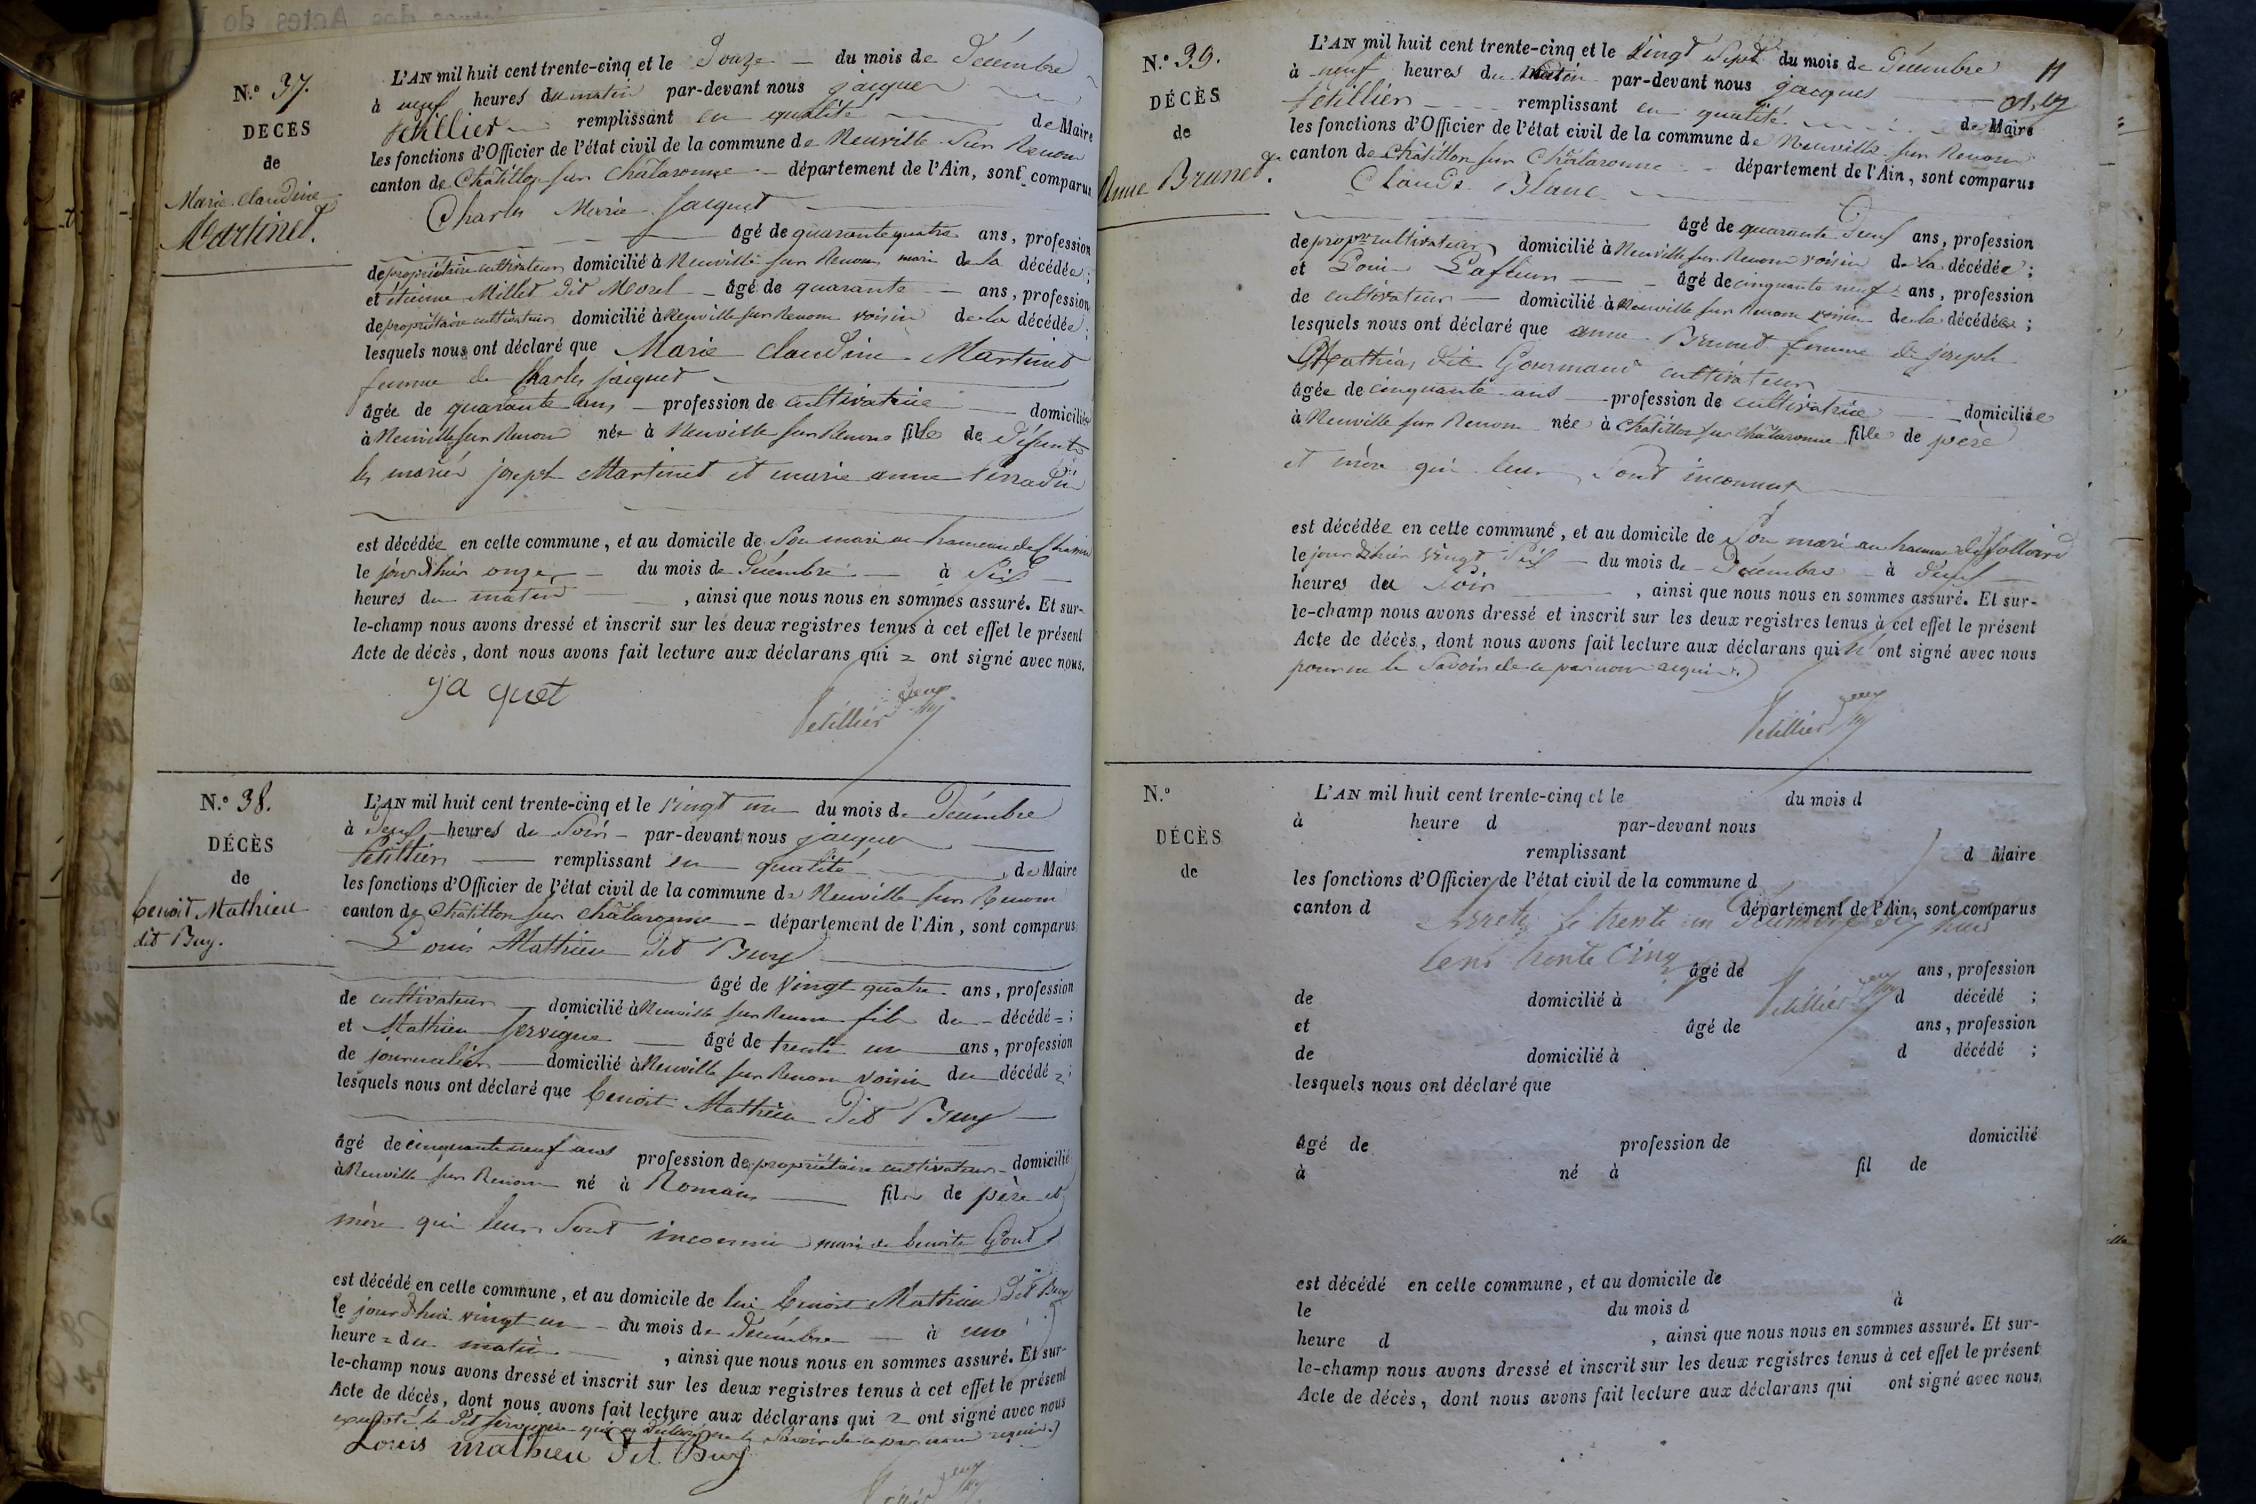 N.º 37.
DÉCÈS
de
Marie Claudine
Martinet.
L'AN mil huit cent trente-cinq et le Douze du mois de Décembre
à neuf heures du matin par-devant nous jacques
Petillier remplissant en qualité de Maire
les fonctions d'Officier de l'état civil de la commune de Neuville sur Renom
canton de Châtillon sur Châlaronne département de l'Ain, sont comparus
Charles Marie Jacquet
âgé de quarante quatre ans, profession
de propriétaire cultivateur domicilié à Neuville sur Renom mari de la décédée ;
et étienne Millet dit Morel âgé de quarante ans, profession
de propriétaire cultivateur domicilié à Neuville sur Renom voisin de la décédée ;
lesquels nous ont déclaré que Marie Claudine Martinet
femme de Charles jacquet
âgée de quarante ans profession de cultivatrice domiciliée
à Neuville sur Renom née à Neuville sur Renom fille de défunts
les mariés joseph Martinet et marie anne
est décédée en cette commune, et au domicile de Son mari au hameau de
le jour d'hier onze du mois de Décembre à Six
heures du matin , ainsi que nous nous en sommes assuré. Et sur-
le-champ nous avons dressé et inscrit sur les deux registres tenus à cet effet le présent
Acte de décès, dont nous avons fait lecture aux déclarans qui = ont signé avec nous.
ja quet Petillier
N.º 38.
DÉCÈS
de
benoit Mathieu
dit Buy.
L'AN mil huit cent trente-cinq et le vingt un du mois de Décembre
à Deux heures du Soir par-devant nous jacques
Petillier remplissant en qualité de Maire
les fonctions d'Officier de l'état civil de la commune de Neuville sur Renom
canton de Châtillon sur Châlaronne département de l'Ain, sont comparus
Louis Mathieu dit Buy
âgé de Vingt quatre ans, profession
de cultivateur domicilié à Neuville sur Renom fils du décédé = ;
et Mathieu Servigne âgé de trente un ans, profession
de journalier domicilié à Neuville sur Renom voisin du décédé = ;
lesquels nous ont déclaré que benoit Mathieu dit Buy
âgé de cinquante neuf ans profession de propriétaire cultivateur domicilié
à Neuville sur Renom né à Romans fils de père et
mère qui leur Sont inconnu mari de benoite
est décédé en cette commune, et au domicile de lui benoit Mathieu dit Buy
le jour d'hui vingt un du mois de Décembre à une
heure = du matin , ainsi que nous nous en sommes assuré. Et sur-
le-champ nous avons dressé et inscrit sur les deux registres tenus à cet effet le présent
Acte de décès, dont nous avons fait lecture aux déclarans qui = ont signé avec nous
excepté le dit Servigne qui a déclaré ne le Savoir de ce par nous requis
Louis mathieu Dit Buy
N.º 39.
DÉCÈS
de
Anne Brunet.
L'AN mil huit cent trente-cinq et le Vingt Sept du mois de Décembre
à neuf heures du matin par-devant nous jacques
Petillier remplissant en qualité de Maire
les fonctions d'Officier de l'état civil de la commune de Neuville sur Renom
canton de Châtillon sur Châlaronne département de l'Ain, sont comparus
Claude Blanc
âgé de quarante Deux ans, profession
de propre cultivateur domicilié à Neuville sur Renom voisin de la décédée ;
et Louis âgé de cinquante neuf ans, profession
de cultivateur domicilié à Neuville sur Renom voisin de la décédée ;
lesquels nous ont déclaré que anne Brunet femme de joseph
Mathias dit Gourmand cultivateur
âgée de cinquante ans profession de cultivatrice domiciliée
à Neuville sur Renom née à Châtillon sur Châlaronne fille de père
et mère qui leur Sont inconnus
est décédée en cette commune, et au domicile de Son mari au hameau de
le jour d'hier vingt Six du mois de Décembre à Deux
heures du Soir , ainsi que nous nous en sommes assuré. Et sur-
le-champ nous avons dressé et inscrit sur les deux registres tenus à cet effet le présent
Acte de décès, dont nous avons fait lecture aux déclarans qui n' ont signé avec nous
pour ne le Savoir de ce par nous requis.
Petillier
N.º
DÉCÈS
de
L'AN mil huit cent trente-cinq et le du mois d
à heure d par-devant nous
remplissant d Maire
les fonctions d'Officier de l'état civil de la commune d
canton d département de l'Ain, sont comparus
Arrêté le trente un Décembre dix huit
cent trente Cinq
âgé de ans, profession
de domicilié à d décédé ;
Petillier
et âgé de ans, profession
de domicilié à d décédé ;
lesquels nous ont déclaré que
âgé de profession de domicilié
à né à fil de
est décédé en cette commune, et au domicile de
le du mois d à
heure d , ainsi que nous nous en sommes assuré. Et sur-
le-champ nous avons dressé et inscrit sur les deux registres tenus à cet effet le présent
Acte de décès, dont nous avons fait lecture aux déclarans qui ont signé avec nous.